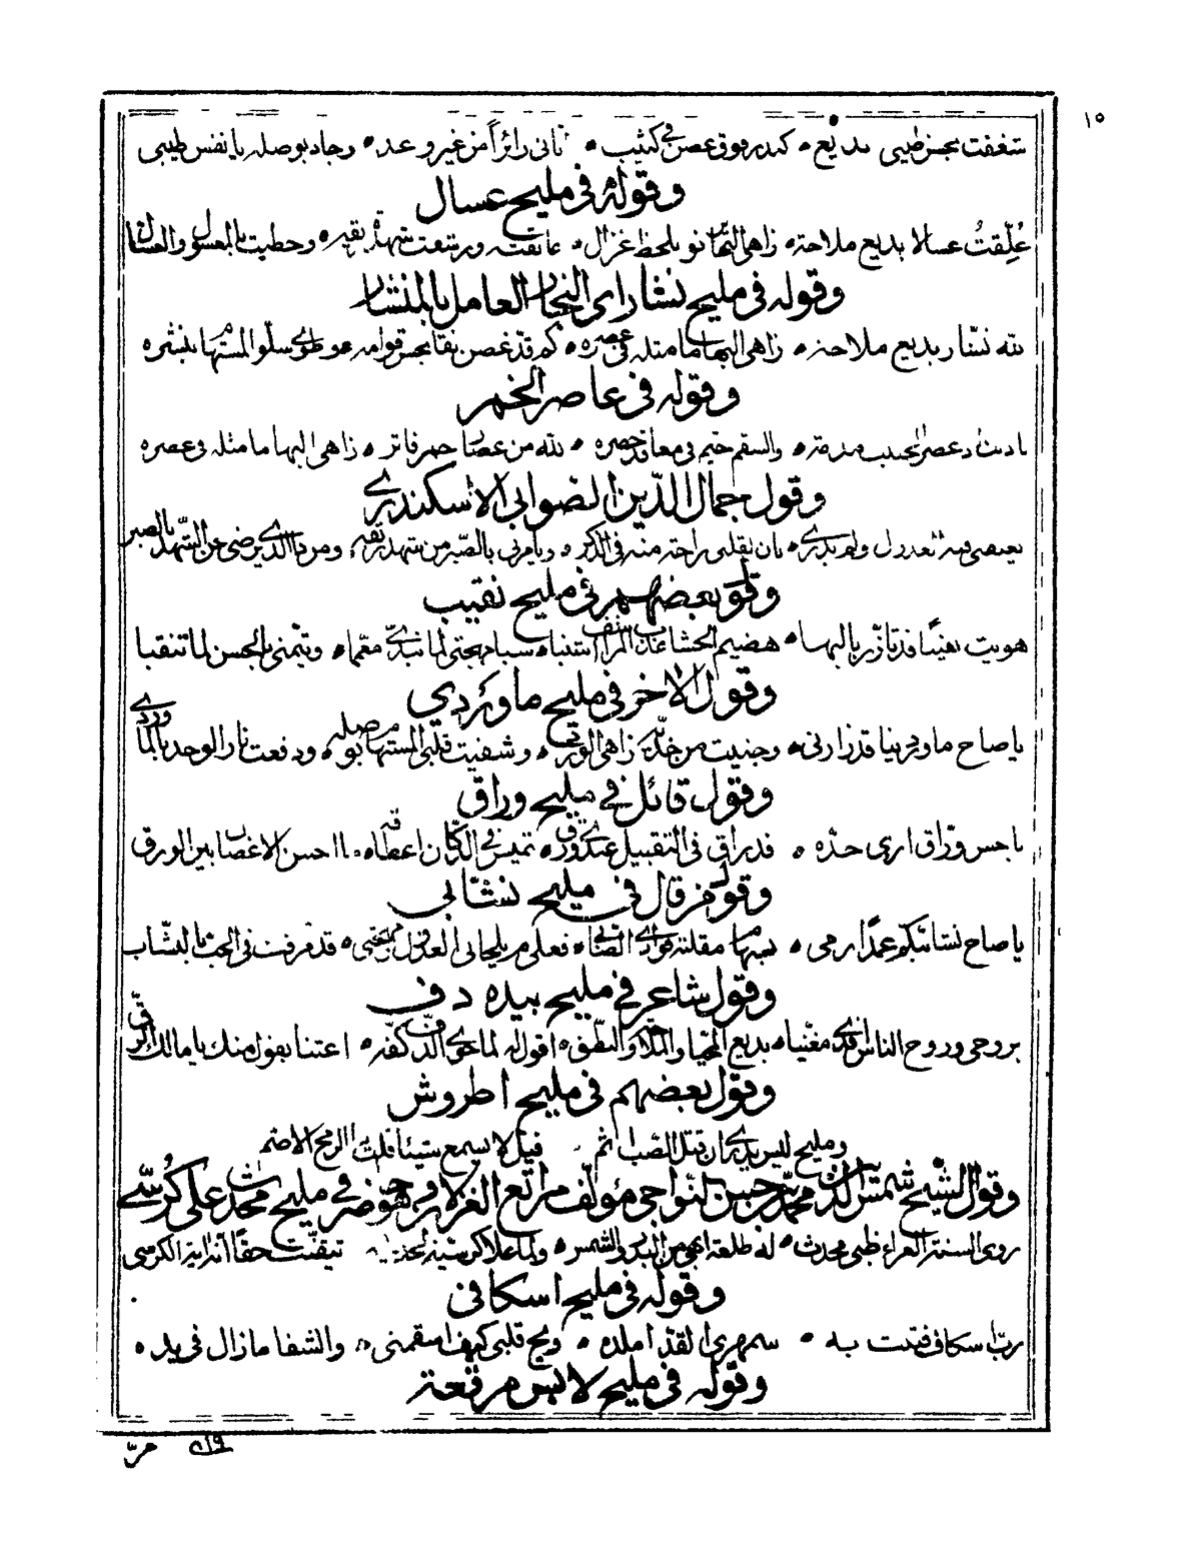 ١٥
شغفت بحسن طيبي بديع ۰ كبدر فوق غصن في كثيب ۰ أتاني زائراً من غير وعد ۰ وجاد بوصله يا نفس طيبي
وقوله في مليح عسال
عُلِّقتُ عسالا بديع ملاحة ۰ زاهي البها يرنو بلحظ غزال ۰ عانقته ورشفت شهدة ثغره ۰ وحظيت بالمعسول والعسال
وقوله في مليح نشار اي النجار العامل بالمنشار
لله نشار بديع ملاحة ۰ زاهي البها ما مثله في عصره ۰ كم قد غصن نقا بحسن قوامه ۰ وطوى سلو المستهام بنشره
وقوله في عاصر الخمر
والسقم خيم في معاقد خصره ۰ لله من عصار خمر فاتر ۰ زاهي البها ما مثله في عصره
وقول جمال الدين الصوابي الاسكندري
ويامرني بالصبر من شهد ثغره ۰ ومن ذا الذي يرضى عن الشهد بالصبر
وقول بعضهم في مليح نقيب
هويت نقيبا قد تازر بالبها ۰ هضيم الحشا عذب المراشف اشنبا ۰ سبا مهجتي لما تبدى معمما ۰ ويتمني بالحسن لما تنقبا
وقول الاخر في مليح ماوردي
يا صاح ماوردينا قد زارني ۰ وجنيت من خديه زاهي الورد ۰ وشفيت قلبي المستهام بوصله ۰ ودفعت نار الوجد بالماوردي
وقول قائل في مليح وراق
يا حسن وراق ارى خده ۰ قد راق في التقبيل عندي ورق ۰ تميس في الدكان اعطافه ۰ ما احسن الاغصان بين الورق
وقول من قال في مليح نشابي
يا صاح نشابيكم عمدًا رمى ۰ بسهام مقلته فؤادي الصابي ۰ فعلى م يلحاني العذول بمهجتي ۰ قد مزقت في الحب بالنشاب
وقول شاعر في مليح بيده دف
بروحي وروح الناس افدي مغنيا ۰ بديع المحيا والملاحة والنطق ۰ اقول له لما حوى الدف كفه ۰ اعتنا بقول منك يا مالك الرق
وقول بعضهم في مليح اطروش
ومليح ليس يدري ان قتل الصب اثم ۰ قيل لا يسمع شيئا قلت ذا الرمح الاصم
وقول الشيخ شمس الدين محمد بن حسن النواجي مؤلف مراتع الغزلان وهو ضر في مليح محدث على كرسي
روى السنة الغراء ظبي محدث ۰ له طلعة ابهى من البدر والشمس ۰ ولما علا كرسيه تيقنت حقا انه اية الكرسي
وقوله في مليح اسكافي
رب اسكاف فتنت به ۰ سمهري القد املده ۰ ويح قلبي كيف اسقمني ۰ والشفا ما زال في يده ۰
وقوله في مليح لابس مرقعة